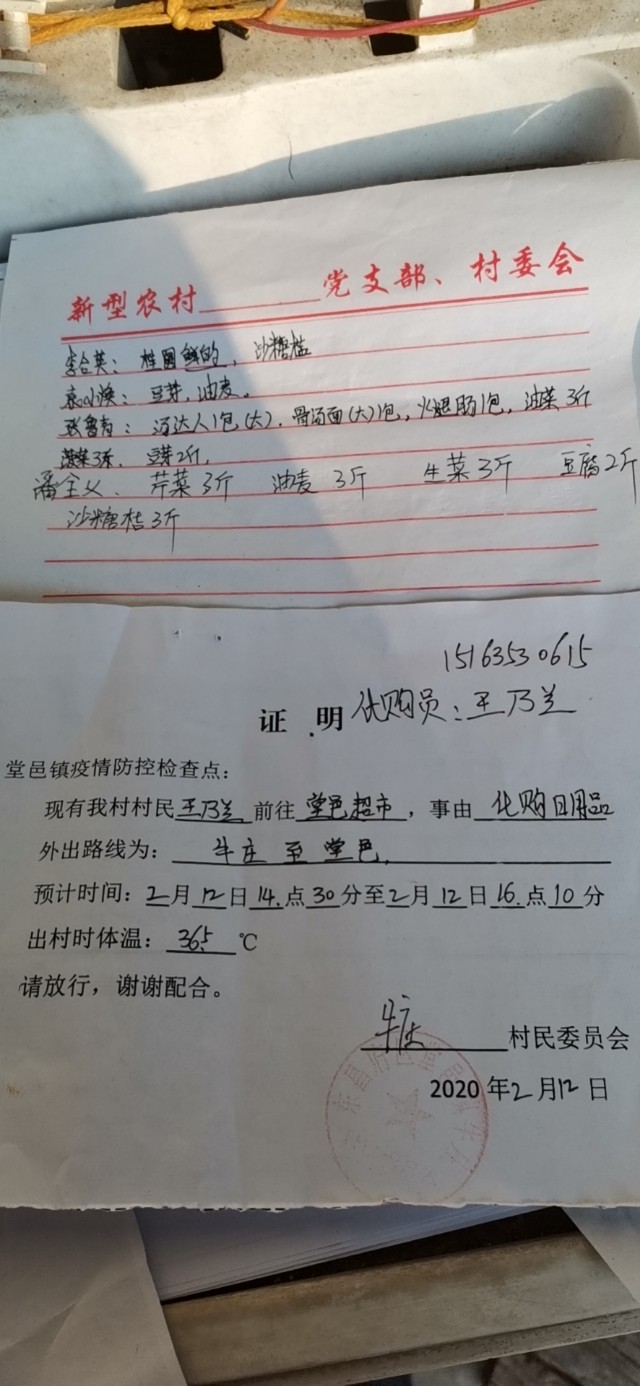 新型农村______党支部、村委会
李合英：桂圆鲜的，沙糖桔
袁小焕：豆芽，油麦。
张鲁寿：汤达人1包(大)．骨汤面(大)1包，火腿肠1包，油菜3斤
菠菜3斤．豆芽2斤，
潘全义．芹菜3斤 油麦 3斤 生菜3斤 豆腐2斤
沙糖桔3斤
15163530615
证 明 代购员：王乃兰
堂邑镇疫情防控检查点：
现有我村村民王乃兰前往堂邑超市，事由代购日用品
外出路线为：牛庄至堂邑
预计时间：2月12日14.点30分至2月12日16.点10分
出村时体温：36.5℃
请放行，谢谢配合。
牛庄 村民委员会
2020年2月12日